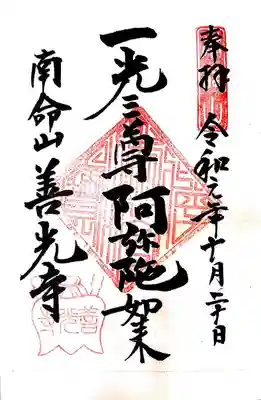 奉拝 令和元年十月二十日
一光三尊阿弥陀如来
南命山善光寺